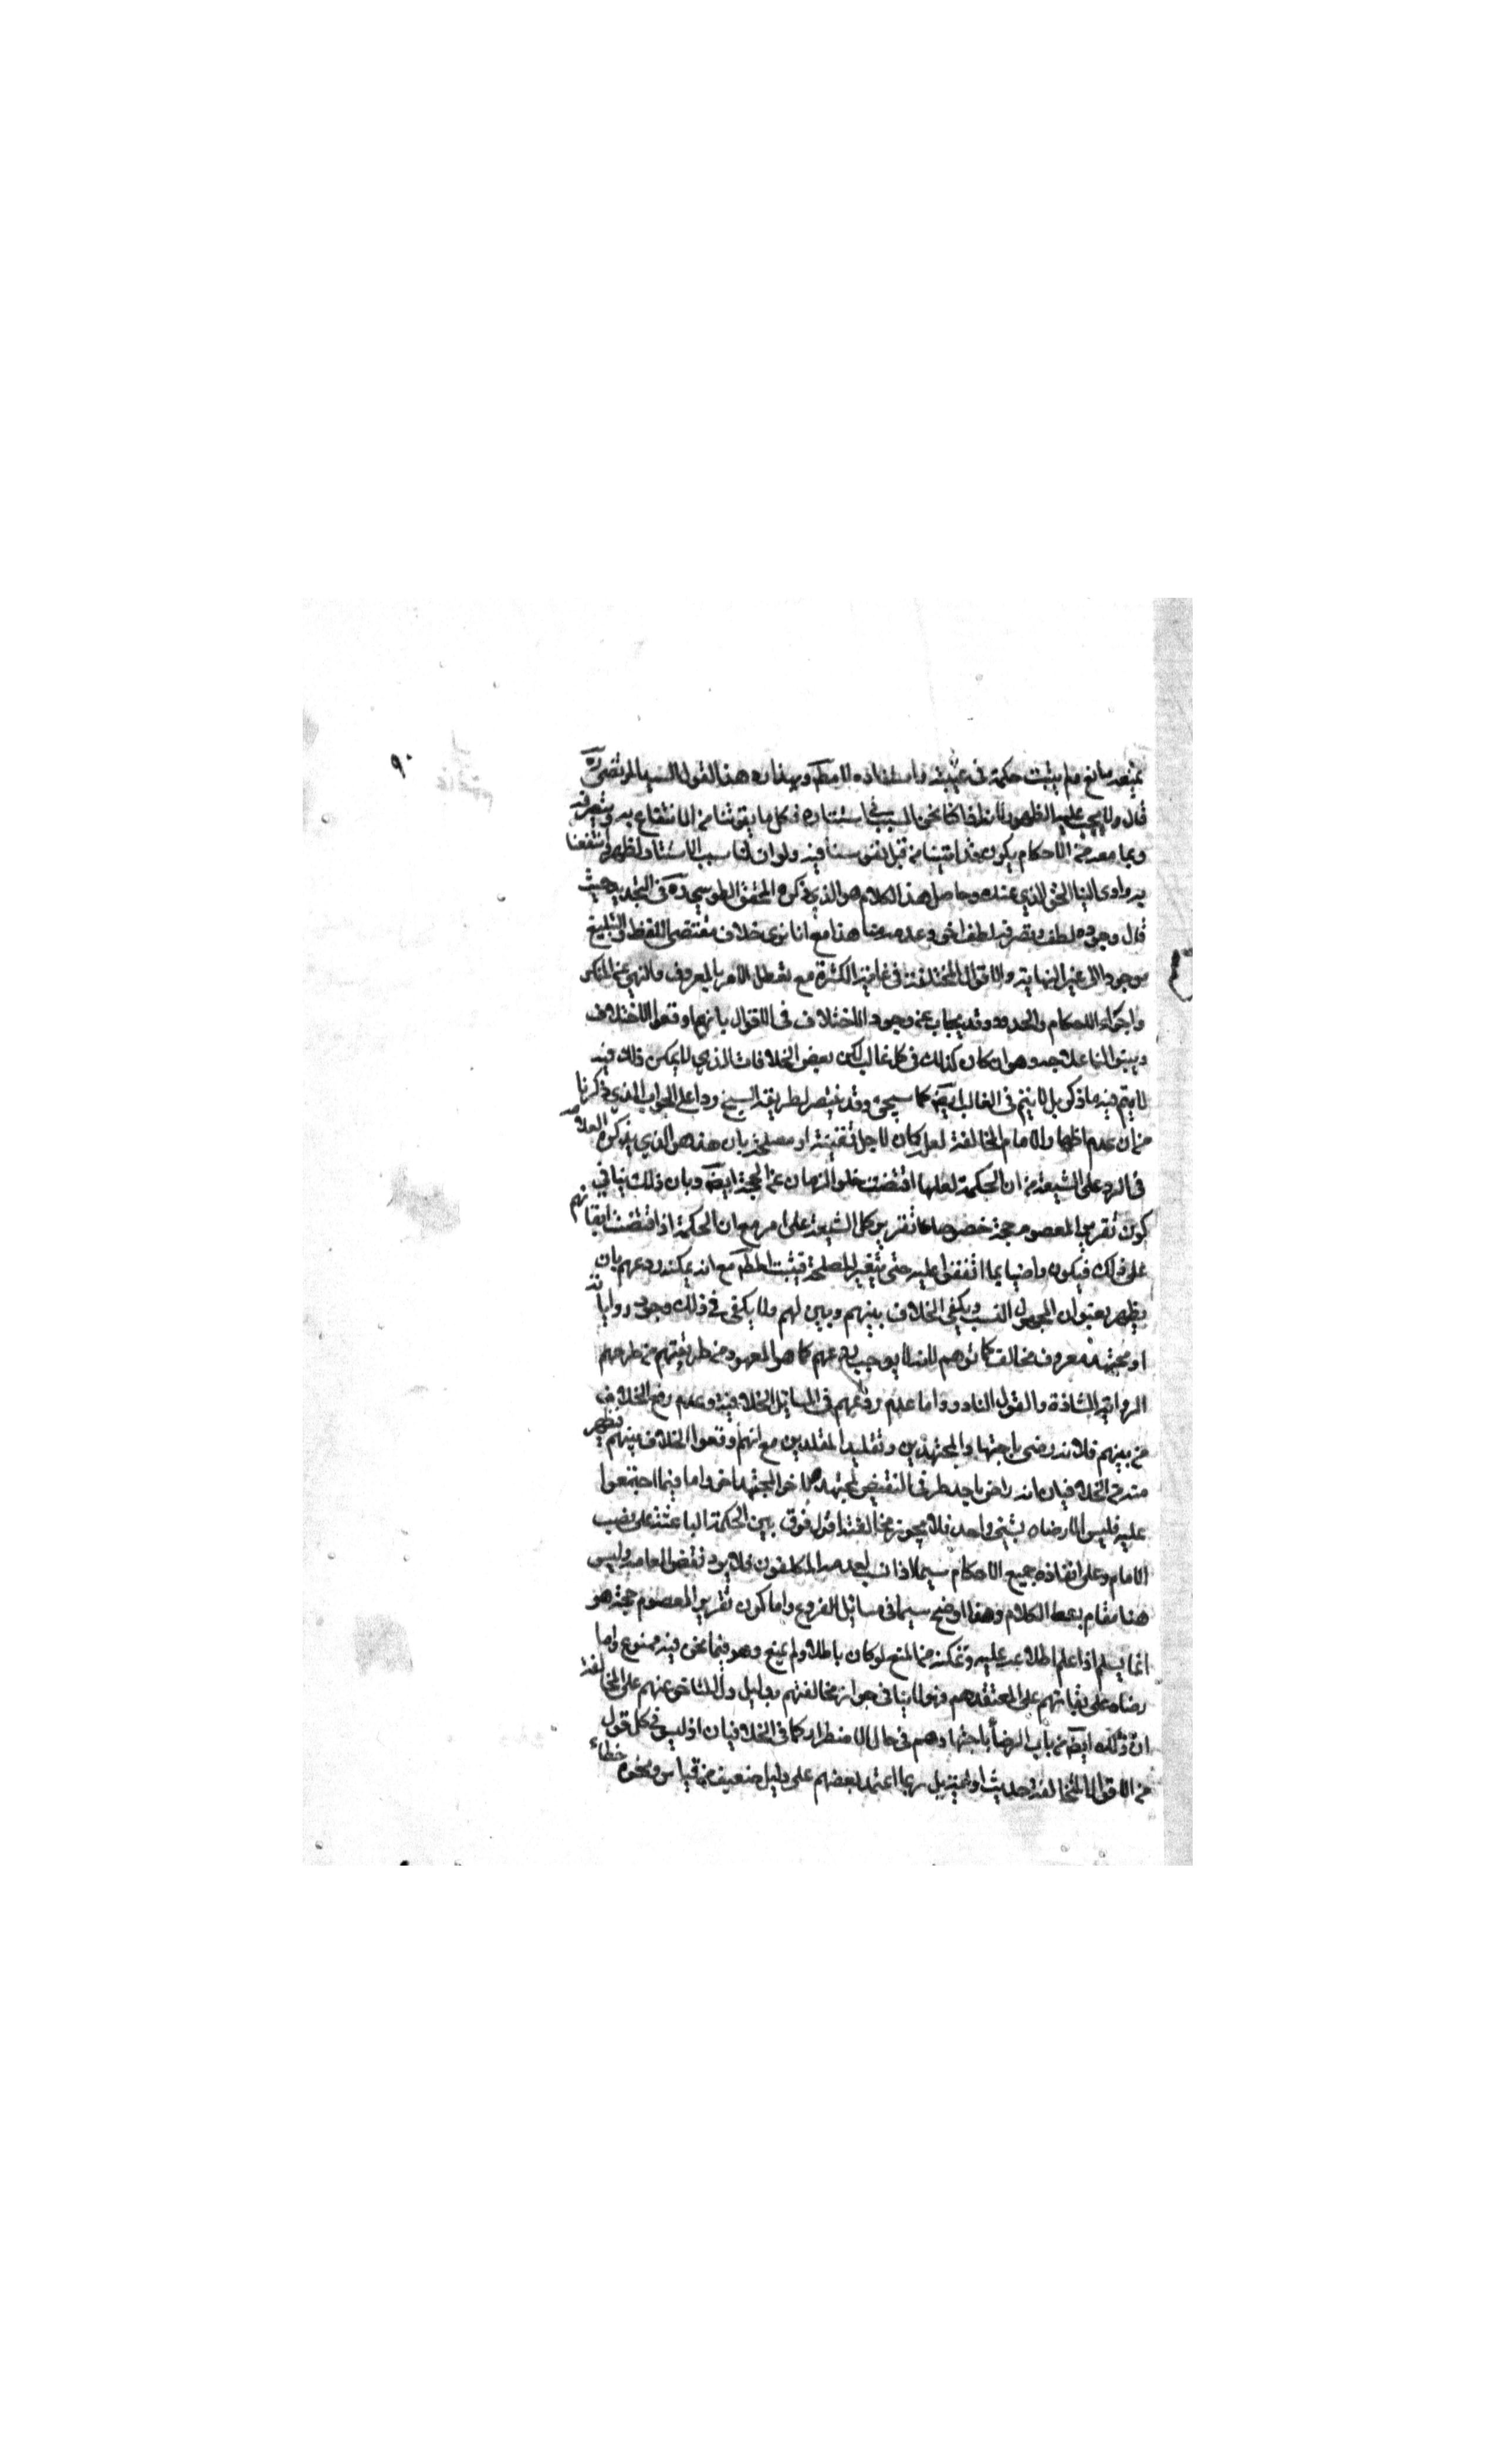 ٩٠
يمنعه مانع ولم يثبت حكمة في غيبته واستناره لا مطلقا وبهذا رد هذا القول السيد المرتضى ره
قال ولا يجب عليه الظهور لانا اذا كنا نحن السبب في استتاره فكل ما يفوتنا من الانتفاع به وبتصرفه
وبما معه من الاحكام يكون قد اتينا من قبل نفوسنا فيه ولو ازلنا سبب الاستتار لظهر وانتفعنا
به وادى الينا الحق الذي عنده وحاصل هذا الكلام هو الذي ذكره المحقق الطوسي ره في التجريد حيث
قال وجوده لطف وتصرفه لطف اخر وعدمه منا هذا مع انا نرى خلاف مقتضى اللفظ والتبليغ
موجودا الى غير النهاية والاقوال المختلفة في غاية الكثرة مع تعطل الامر بالمعروف والنهي عن المنكر
واجراء الاحكام والحدود وقد يجاب عن وجود الاختلاف في الاقوال بانهم اوقعوا الاختلاف
وبينوا لنا علاجه وهو ان كان كذلك في كل غالب لكن بعض الخلافات الذي لا يمكن ذلك فيه
لا يتم فيه ما ذكر بل لا يتم في الغالب ايضا كما سيجئ وقد ينتصر لطريقة الشيخ ردا على الجواب الذي ذكرنا
من ان عدم اظهار الامام المخالفة لعل كان لاجل تقية او مصلحة بان هذا هو الذي يذكره العامة
في الرد على الشيعة من ان الحكمة لعلها اقتضت خلو الزمان عن الحجة ايضا وبان ذلك ينافي
كون تقرير المعصوم حجة خصوصا تقرير كل الشيعة على امر مع ان الحكمة اذا اقتضت ابقائهم
على ذلك فيكون راضيا بما اتفقوا عليه حتى يتغير المصلحة فيثبت المطلوب مع انه يمكنه ردعهم بان
يظهر بعنوان المجهول النسب ويلقى الخلاف بينهم ويبين لهم ولا يكفي في ذلك وجود رواياته
او مجتهد معروف مخالف كما توهم لانه لا يوجب ردعهم كما هو المعهود من طريقتهم من طرحهم
الرواية الشاذة والقول النادر واما عدم ردعهم في المسائل الخلافية وعدم رفع الخلاف
من بينهم فلانه رضي باجتهاد المجتهدين وتقليد المقلدين مع انهم اوقعوا الخلاف بينهم فظهر
منه في الخلافيات انه راض باحد طرفي النقيض لمجتهد والاخر لمجتهد اخر واما فيما اجتمعوا
عليه فليس الا رضاه بشئ واحد فلا يجوز مخالفته اقول فرق بين الحكمة الباعثة على نصب
الامام وعلى انفاذه جميع الاحكام سيما اذا نسب لعدمه المكلفون فلا يرد نقض العامة وليس
هنا مقام بسط الكلام وهذا اوضح سيما في مسائل الفروع واما كون تقرير المعصوم حجة هو
انما يسلم اذا علم اطلاعه عليه وتمكنه من المنع لو كان باطلا ولم يمنع وهو فيما نحن فيه ممنوع واما
رضاه على بقائهم على معتقدهم فهو لا ينافي جواز مخالفتهم بدليل دل المتاخر عنهم على المخالفة
ان ذلك ايضا من باب الرضا باجتهادهم في حال الاضطرار كما في الخلافيات اذ ليس في كل قول
من الاقوال المخالفة حديث او آية بل ربما اعتمد بعضهم على دليل ضعيف من قياس ونحوه خطاء